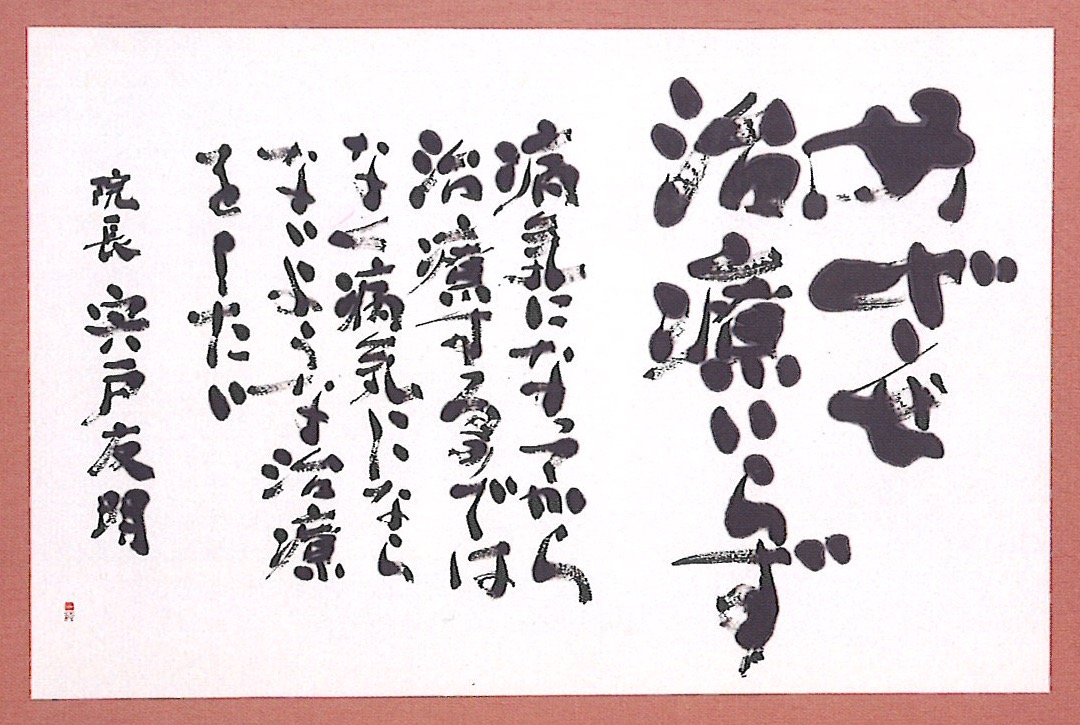 めざせ
治療いらず
病気になってから
治療するのでは
なく病気になら
ないような治療
をしたい
院長 宍戸友明